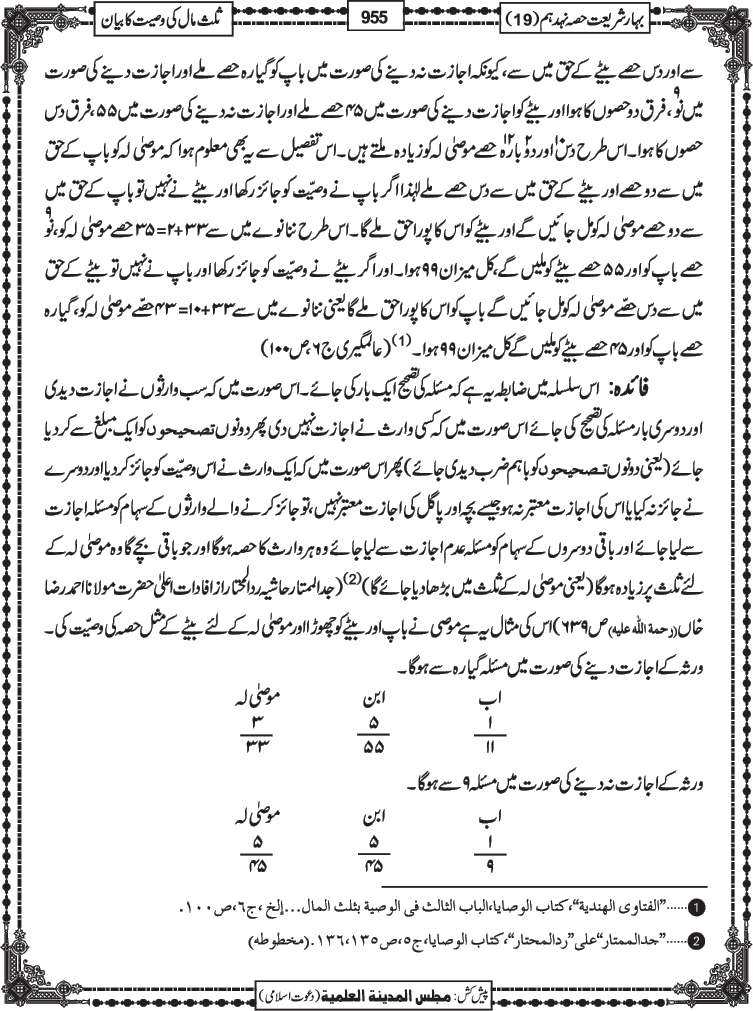 بہار شریعت حصہ نہدہم (19)
955
ثلث مال کی وصیت کا بیان
سے اور دس حصے بیٹے کے حق میں سے، کیونکہ اجازت نہ دینے کی صورت میں باپ کو گیارہ حصے ملے اور اجازت دینے کی صورت
میں نو۹، فرق دو حصوں کا ہوا اور بیٹے کو اجازت دینے کی صورت میں ۴۵ حصے ملے اور اجازت نہ دینے کی صورت میں ۵۵، فرق دس
حصوں کا ہوا۔ اس طرح دس۱۰ اور دو۲ بارہ۱۲ حصے موصیٰ لہ کو زیادہ ملتے ہیں۔ اس تفصیل سے یہ بھی معلوم ہوا کہ موصیٰ لہ کو باپ کے حق
میں سے دو حصے اور بیٹے کے حق میں سے دس حصے ملے لہٰذا اگر باپ نے وصیّت کو جائز رکھا اور بیٹے نے نہیں تو باپ کے حق میں
سے دو حصے موصیٰ لہ کو مل جائیں گے اور بیٹے کو اس کا پورا حق ملے گا۔ اس طرح ننانوے میں سے ۳۳+۲=۳۵ حصے موصیٰ لہ کو، نو۹
حصے باپ کو اور ۵۵ حصے بیٹے کو ملیں گے، کل میزان ۹۹ ہوا۔ اور اگر بیٹے نے وصیّت کو جائز رکھا اور باپ نے نہیں تو بیٹے کے حق
میں سے دس حصّے موصیٰ لہ کو مل جائیں گے باپ کو اس کا پورا حق ملے گا یعنی ننانوے میں سے ۳۳+۱۰=۴۳ حصّے موصیٰ لہ کو، گیارہ
حصے باپ کو اور ۴۵ حصے بیٹے کو ملیں گے کل میزان ۹۹ ہوا۔(1) (عالمگیری ج۶، ص۱۰۰)
فائدہ: اس سلسلہ میں ضابطہ یہ ہے کہ مسئلہ کی تصحیح ایک بار کی جائے۔ اس صورت میں کہ سب وارثوں نے اجازت دیدی
اور دوسری بار مسئلہ کی تصحیح کی جائے اس صورت میں کہ کسی وارث نے اجازت نہیں دی پھر دونوں تصحیحوں کو ایک مبلغ سے کر دیا
جائے (یعنی دونوں تصحیحوں کو باہم ضرب دیدی جائے) پھر اس صورت میں کہ ایک وارث نے اس وصیّت کو جائز کر دیا اور دوسرے
نے جائز نہ کیا یا اس کی اجازت معتبر نہ ہو جیسے بچہ اور پاگل کی اجازت معتبر نہیں، تو جائز کرنے والے وارثوں کے سہام کو مسئلہ اجازت
سے لیا جائے اور باقی دوسروں کے سہام کو مسئلہ عدم اجازت سے لیا جائے وہ ہر وارث کا حصہ ہوگا اور جو باقی بچے گا وہ موصیٰ لہ کے
لئے ثلث پر زیادہ ہوگا (یعنی موصیٰ لہ کے ثلث میں بڑھا دیا جائے گا)(2) (جد الممتار حاشیہ ردالمحتار از افادات اعلیٰ حضرت مولانا احمد رضا
خاں (رحمة الله عليه) ص۶۳۹) اس کی مثال یہ ہے موصی نے باپ اور بیٹے کو چھوڑا اور موصیٰ لہ کے لئے بیٹے کے مثل حصہ کی وصیّت کی۔
ورثہ کے اجازت دینے کی صورت میں مسئلہ گیارہ سے ہوگا۔
اب ابن موصیٰ لہ
۱ ۵ ۳
۱۱ ۵۵ ۳۳
ورثہ کے اجازت نہ دینے کی صورت میں مسئلہ ۹ سے ہوگا۔
اب ابن موصیٰ لہ
۱ ۵ ۵
۹ ۴۵ ۴۵
1 ......"الفتاوى الهندية"، كتاب الوصايا، الباب الثالث فى الوصية بثلث المال...إلخ، ج٦، ص١٠٠.
2 ......"جدالممتار" على "ردالمحتار"، كتاب الوصايا، ج٥، ص١٣٥، ١٣٦. (مخطوطه)
پیش کش: مجلس المدينة العلمية (دعوتِ اسلامی)